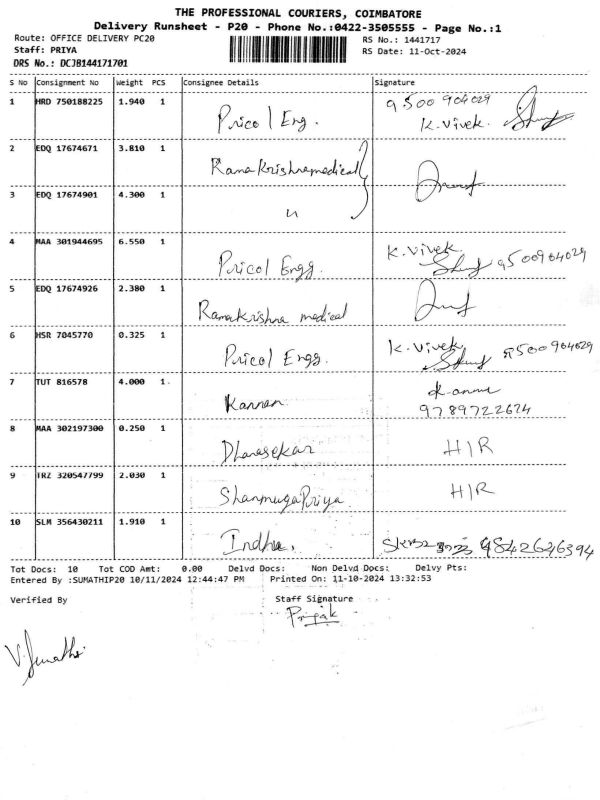 THE PROFESSIONAL COURIERS, COIMBATORE
Delivery Runsheet - P20 - Phone No.:0422-3505555 - Page No.:1
Route: OFFICE DELIVERY PC20
RS No.: 1441717
Staff: PRIYA
RS Date: 11-Oct-2024
DRS No.: DCJB144171701
S No Consignment No Weight PCS Consignee Details Signature
1 HRD 750188225 1.940 1 Pricol Eng. 9500904029
K. Vivek.
2 EDQ 17674671 3.810 1 Ramakrishna medical
3 EDQ 17674901 4.300 1 "
4 MAA 301944695 6.550 1 Pricol Engg. K. Vivek. 9500904029
5 EDQ 17674926 2.380 1 Ramakrishna medical
6 HSR 7045770 0.325 1 Pricol Engg. K. Vivek 9500904029
7 TUT 816578 4.000 1 Kannan
9789722624
8 MAA 302197300 0.250 1 Dhanasekar H/R
9 TRZ 320547799 2.030 1 ShanmugaPriya H/R
10 SLM 356430211 1.910 1 Indhu. 9842646394
Tot Docs: 10 Tot COD Amt: 0.00 Delvd Docs: Non Delvd Docs: Delvy Pts:
Entered By :SUMATHIP20 10/11/2024 12:44:47 PM Printed On: 11-10-2024 13:32:53
Verified By Staff Signature